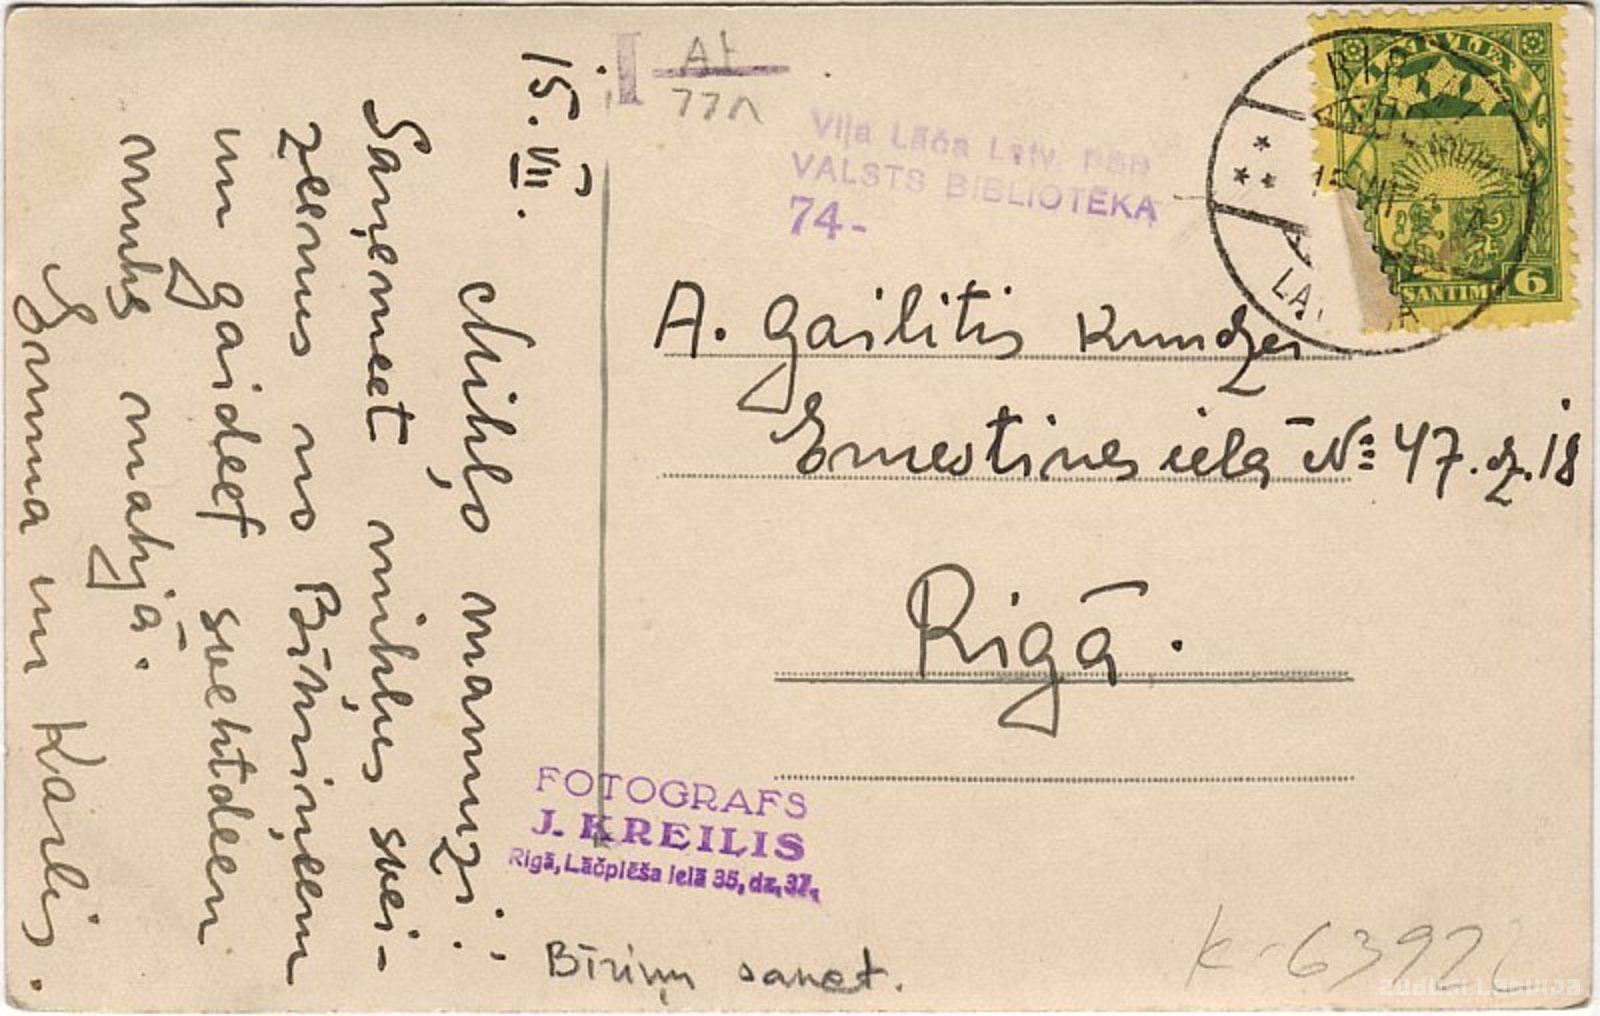 15. VII.
Miļo mamuzi:
Saņemeet miļus svei-
zeenus no Bīriņeem
un gaideet svehtdeen
muhs mahjā.
Emma un Karlis.
At
77
Viļa Lāča Latv. PSR
VALSTS BIBLIOTĒKA
74-
LATVIJA
SANTIMI 6
A. Gailitis kundzei
Ernestines ielā № 47. dz. 18
Rigā.
FOTOGRAFS
J. KREILIS
Rigā, Lāčplēša ielā 35, dz. 37.
Bīriņu sanat.
K-6392
zudusi Latvija